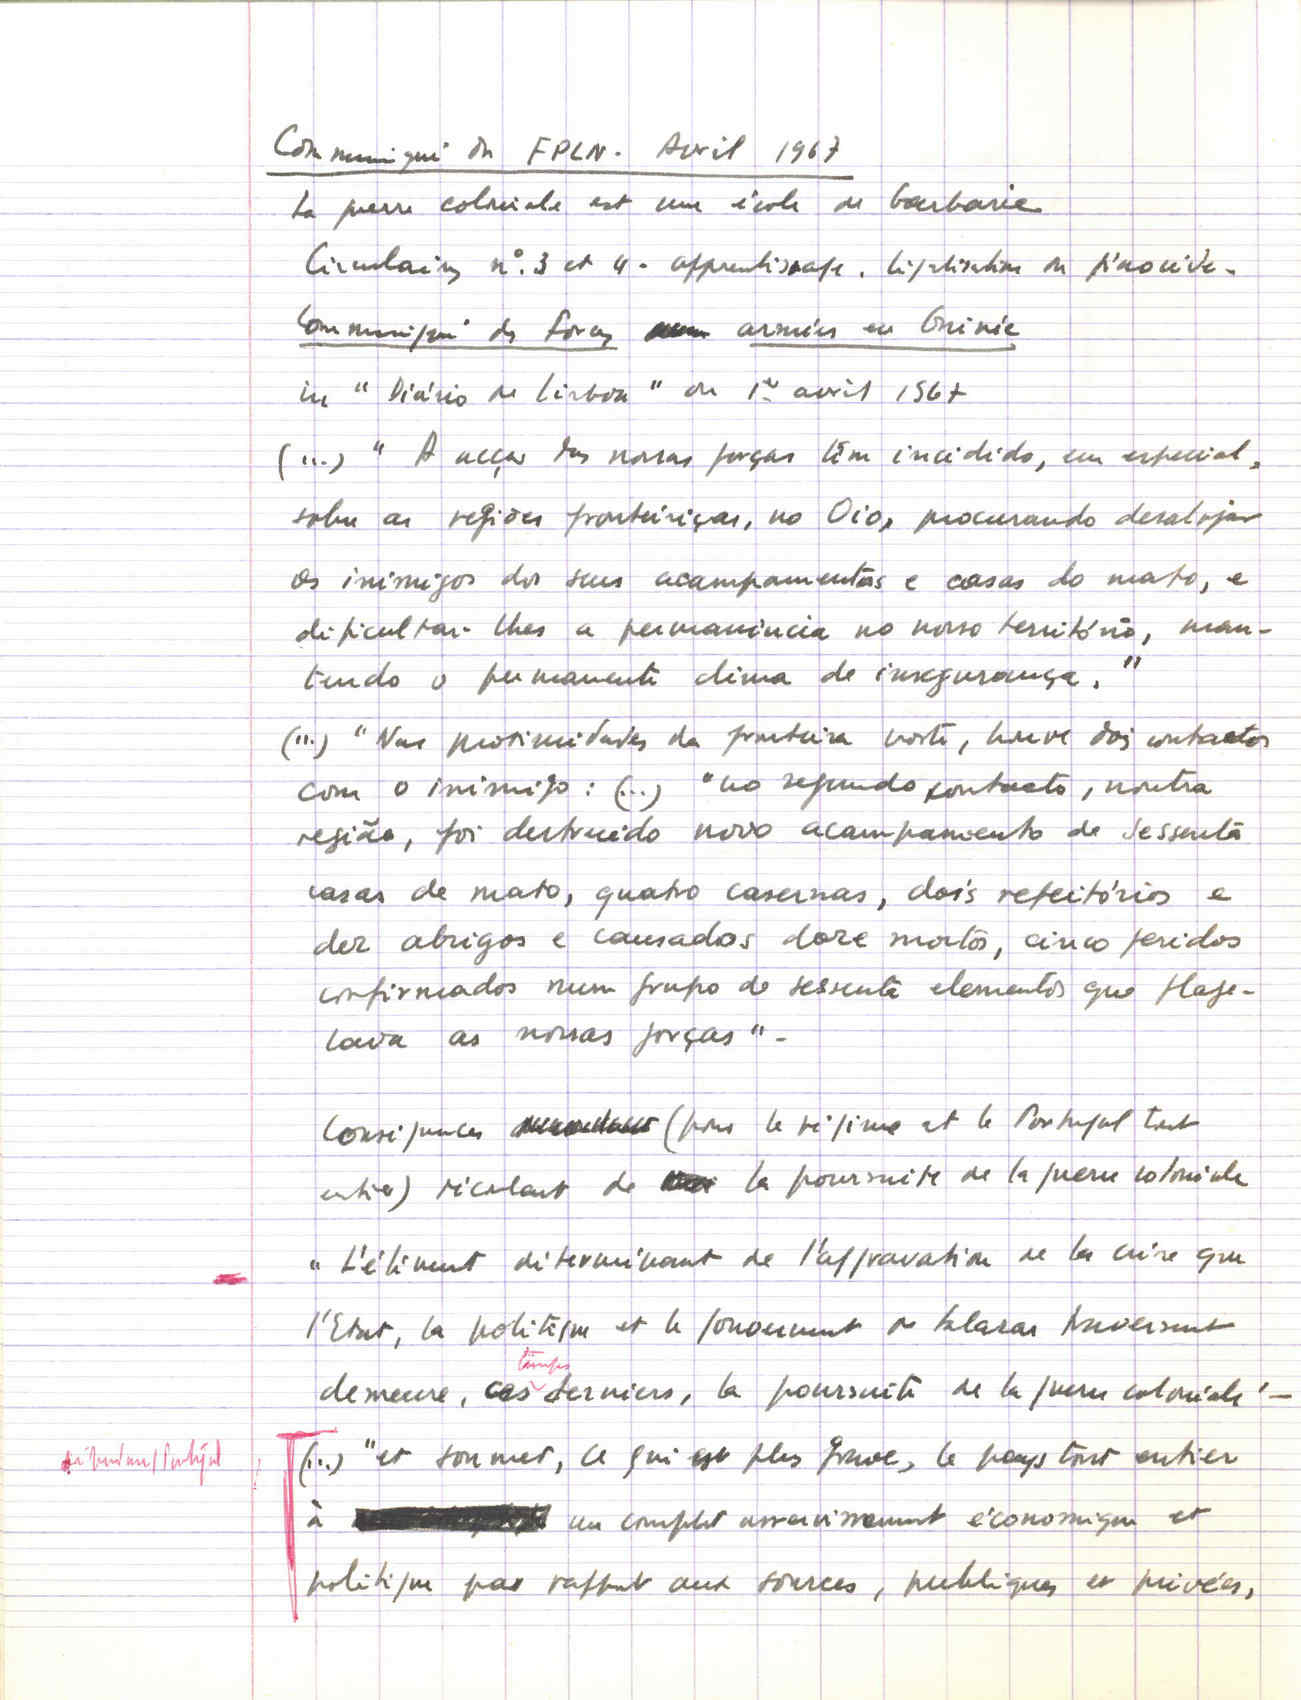 Communiqué du FPLN. Avril 1967
La guerre coloniale est une école de barbarie
Circulaires nº. 3 et 4 - apprentissage. légalisation du génocide.
Communiqué des forces armées en Guinée
in "Diário de Lisboa" du 1er avril 1967
(...) "A acção das nossas forças têm incidido, em especial,
sobre as regiões fronteiriças, no Oio, procurando desalojar
os inimigos dos seus acampamentos e casas do mato, e
dificultar-lhes a permanência no nosso território, man-
tendo o permanente clima de insegurança."
(...) "Nas proximidades da fronteira norte, houve dois contactos
com o inimigo : (...) "no segundo contacto, noutra
região, foi destruido novo acampamento de sessenta
casas de mato, quatro casernas, dois refeitórios e
dez abrigos e causados doze mortos, cinco feridos
confirmados num grupo de sessenta elementos que flage-
lava as nossas forças" -
Conséquences (pour le régime et le Portugal tout
entier) découlant de la poursuite de la guerre coloniale
" L'élément déterminant de l'aggravation de la crise que
l'Etat, la politique et le gouvernement de Salazar traversent
temps
demeure, ces derniers, la poursuite de la guerre coloniale" -
(...) "et soumet, ce qui est plus grave, le pays tout entier
à un complet asservissement économique et
politique par rapport aux sources, publiques et privées,